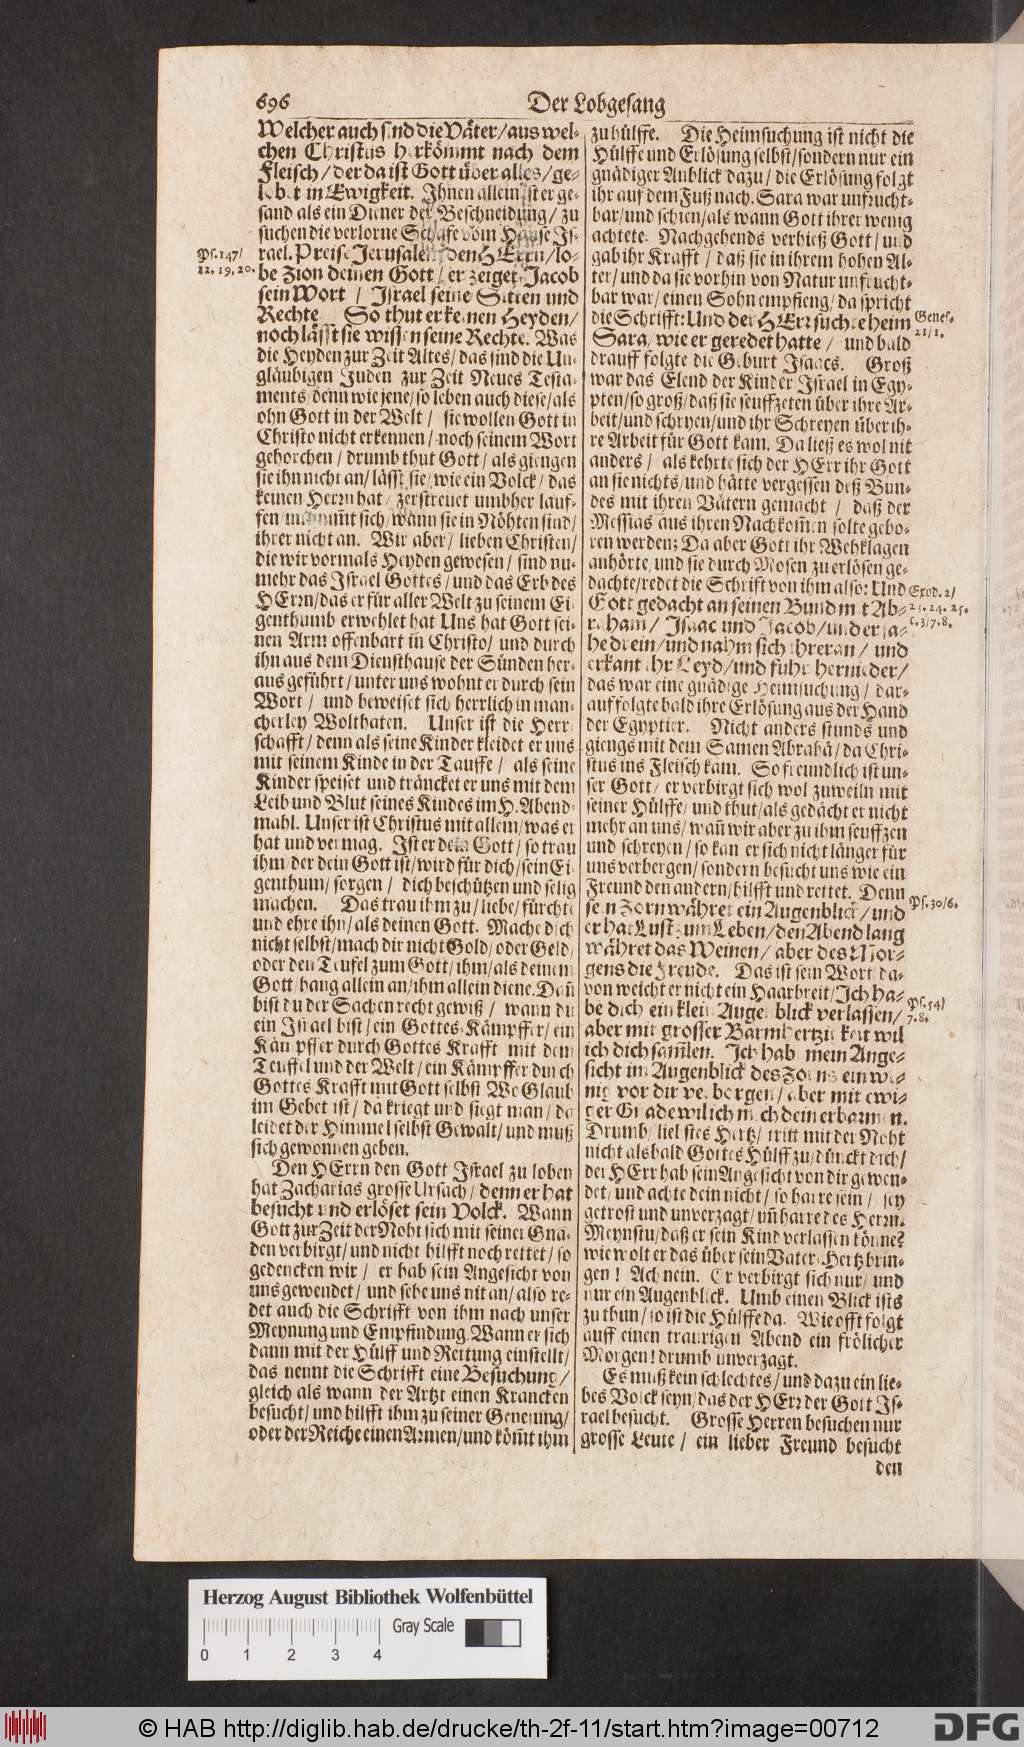 696
Der Lobgesang
Welcher auch sind die Väter/aus wel-
chen Christus herkömmt nach dem
Fleisch/der da ist Gott über alles/ge-
lobet in Ewigkeit. Ihnen allein ist er ge-
sand als ein Diener der Beschneidung/zu
suchen die verlorne Schafe vom Hause Is-
rael. Preise Jerusalem den HErrn/lo-
be Zion deinen Gott/er zeiget Jacob
sein Wort/Israel seine Sitten und
Rechte. So thut er keinen Heyden/
noch lässt sie wissen seine Rechte. Was
die Heyden zur Zeit Altes/das sind die Un-
gläubigen Juden zur Zeit Neues Testa-
ments/denn wie jene/so leben auch diese/als
ohn Gott in der Welt/sie wollen Gott in
Christo nicht erkennen/noch seinem Wort
gehorchen/drumb thut Gott/als giengen
sie ihn nicht an/lässt sie/wie ein Volck/das
keinen Herrn hat/zerstreuet umbher lauf-
fen/und nim̃t sich/wann sie in Nöhten sind/
ihrer nicht an. Wir aber/lieben Christen/
die wir vormals Heyden gewesen/sind nu-
mehr das Israel Gottes/und das Erb des
HErrn/das er für aller Welt zu seinem Ei-
genthumb erwehlet hat Uns hat Gott sei-
nen Arm offenbart in Christo/und durch
ihn aus dem Diensthause der Sünden her-
aus geführt/unter uns wohnt er durch sein
Wort/und beweiset sich herrlich in man-
cherley Wolthaten. Unser ist die Herr-
schafft/denn als seine Kinder kleidet er uns
mit seinem Kinde in der Tauffe/als seine
Kinder speiset und träncket er uns mit dem
Leib und Blut seines Kindes im H. Abend-
mahl. Unser ist Christus mit allem/was er
hat und vermag. Ist er dein Gott/so trau
ihm der dein Gott ist/wird für dich/sein Ei-
genthum/sorgen/dich beschützen und selig
machen. Das trau ihm zu/liebe/fürchte
und ehre ihn/als deinen Gott. Mache dich
nicht selbst/mach dir nicht Gold/oder Geld/
oder den Teufel zum Gott/ihm/als deinem
Gott/hang allein an/ihm allein diene. Dañ
bist du der Sachen recht gewiß/wann du
ein Israel bist/ein Gottes-Kämpffer/ein
Kämpffer durch Gottes Krafft mit dem
Teuffel und der Welt/ein Kämpffer durch
Gottes Krafft mit Gott selbst Wo Glaub
im Gebet ist/da kriegt und siegt man/da
leidet der Himmel selbst Gewalt/und muß
sich gewonnen geben.
Den HErrn den Gott Israel zu loben
hat Zacharias grosse Ursach/denn er hat
besucht und erlöset sein Volck. Wann
Gott zur Zeit der Noht sich mit seiner Gna-
den verbirgt/und nicht hilfft noch rettet/so
gedencken wir/er hab sein Angesicht von
uns gewendet/und sehe uns nit an/also re-
det auch die Schrifft von ihm nach unser
Meynung und Empfindung. Wann er sich
dann mit der Hülff und Rettung einstellt/
das nennt die Schrifft eine Besuchung/
gleich als wann der Artzt einen Krancken
besucht/und hilfft ihm zu seiner Genesung/
oder der Reiche einen Armen/und köm̃t ihm
Ps. 147/
12. 19. 20.
zu hülffe. Die Heimsuchung ist nicht die
Hülffe und Erlösung selbst/sondern nur ein
gnädiger Anblick dazu/die Erlösung folgt
ihr auf dem Fuß nach. Sara war unfrucht-
bar/und schien/als wann Gott ihrer wenig
achtete. Nachgehends verhieß Gott/und
gab ihr Krafft/daß sie in ihrem hohen Al-
ter/und da sie vorhin von Natur unfrucht-
bar war/einen Sohn empfieng/da spricht
die Schrifft: Und der HErr suchte heim
Sara/wie er geredet hatte/und bald
drauff folgte die Geburt Isaacs. Groß
war das Elend der Kinder Israel in Egy-
pten/so groß/daß sie seuffzeten über ihre Ar-
beit/und schryen/und ihr Schreyen über ih-
re Arbeit für Gott kam. Da ließ es wol nit
anders/als kehrte sich der HErr ihr Gott
an sie nichts/und hätte vergessen deß Bun-
des mit ihren Vätern gemacht/daß der
Messias aus ihren Nachkom̃en solte gebo-
ren werden: Da aber Gott ihr Wehklagen
anhörte/und sie durch Mosen zu erlösen ge-
dachte/redet die Schrift von ihm also: Und
Gott gedacht an seinen Bund mit Ab-
raham/Isaac und Jacob/und er sa-
he drein/und nahm sich ihrer an/und
erkant ihr Leyd/und fuhr hernieder/
das war eine gnädige Heimsuchung/dar-
auf folgte bald ihre Erlösung aus der Hand
der Egyptier. Nicht anders stunds und
giengs mit dem Samen Abrahã/da Chri-
stus ins Fleisch kam. So freundlich ist un-
ser Gott/er verbirgt sich wol zuweiln mit
seiner Hülffe/und thut/als gedächt er nicht
mehr an uns/wañ wir aber zu ihm seuffzen
und schreyen/so kan er sich nicht länger für
uns verbergen/sondern besucht uns wie ein
Freund den andern/hilfft und rettet. Denn
sein Zorn währet ein Augenblick/und
er hat Lust zum Leben/den Abend lang
währet das Weinen/aber des Mor-
gens die Freude. Das ist sein Wort/da-
von weicht er nicht ein Haarbreit/Ich ha-
be dich ein klein Augenblick verlassen/
aber mit grosser Barmhertzigkeit wil
ich dich sam̃len. Ich hab mein Ange-
sicht im Augenblick des Zorns ein we-
nig vor dir verborgen/aber mit ewi-
ger Gnade wil ich mich dein erbarmen.
Drumb/liebstes Hertz/tritt mit der Noht
nicht alsbald Gottes Hülff zu/dünckt dich/
der HErr hab sein Angesicht von dir gewen-
det/und achte dein nicht/so harre sein/sey
getrost und unverzagt/uñ harre des Herrn.
Meynstu/daß er sein Kind verlassen könne?
wie wolt er das über sein Vater-Hertz brin-
gen! Ach nein. Er verbirgt sich nur/und
nur ein Augenblick. Umb einen Blick ists
zu thun/so ist die Hülffe da. Wie offt folgt
auff einen traurigen Abend ein frölicher
Morgen! drumb unverzagt.
Es muß kein schlechtes/und dazu ein lie-
bes Volck seyn/das der HErr der Gott Is-
rael besucht. Grosse Herren besuchen nur
grosse Leute/ein lieber Freund besucht
den
Genes.
21/1.
Exod. 2/
23. 24. 25.
c. 3/7. 8.
Ps. 30/6.
Ps. 54/
7. 8.
Herzog August Bibliothek Wolfenbüttel
Gray Scale
0 1 2 3 4
© HAB http://diglib.hab.de/drucke/th-2f-11/start.htm?image=00712
DFG